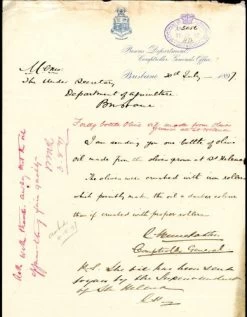 Prisons Department,
Comptroller General's Office,
Brisbane 30th July 1897
Memo
The Under Secretary
Department of Agriculture
Brisbane
Forty bottle Olive oil made from olives
grown at St Helena
I am sending you one bottle of olive
oil made from the olives grown at St Helena
The olives were crushed with iron rollers
which possibly makes the oil a darker colour
than if crushed with proper rollers
Comptroller General
P.S. The oil has been sent
by the Superintendent
of St Helena
Note with thanks